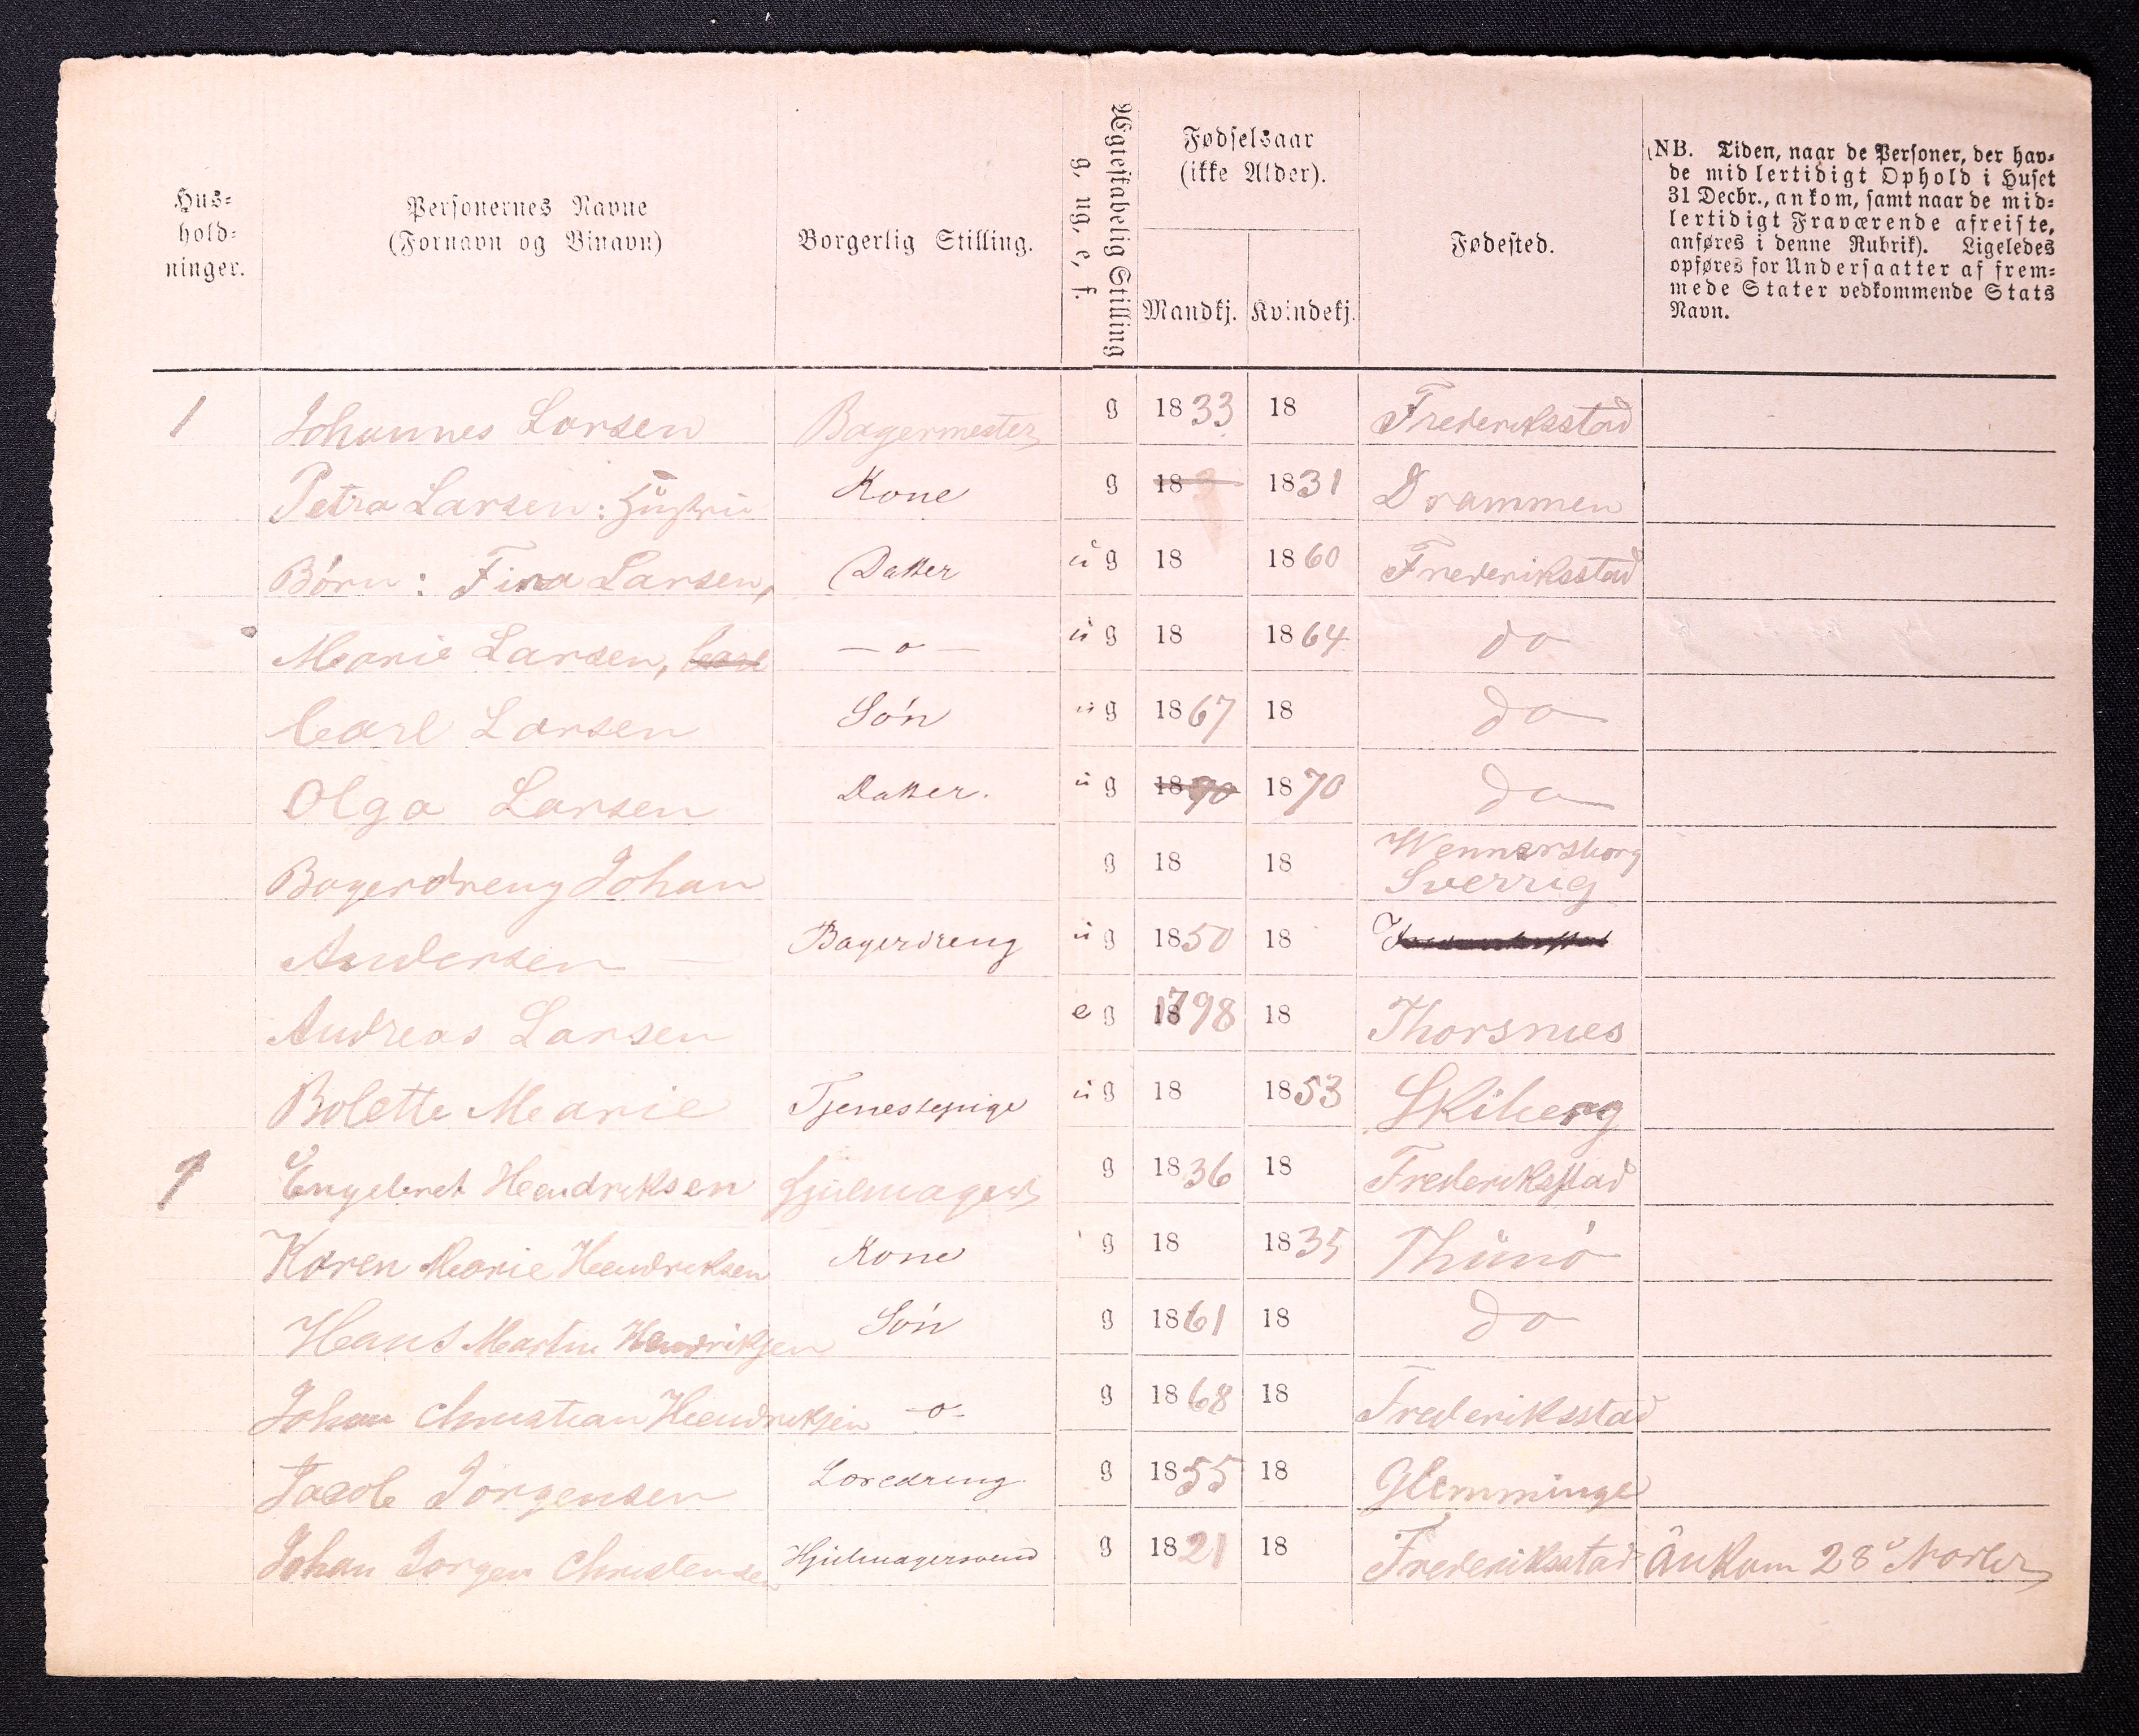 Hus-
hold-
ninger.
Personernes Navne
(Fornavn og Binavn)
Borgerlig Stilling.
Ægteskabelig Stilling
g, ug, e, f.
Fødselsaar
(ikke Alder).
Mandkj. Kvindekj.
Fødested.
(NB. Tiden, naar de Personer, der hav-
de midlertidigt Ophold i Huset
31 Decbr., ankom, samt naar de mid-
lertidigt Fraværende afreiste,
anføres i denne Rubrik). Ligeledes
opføres for Undersaatter af frem-
mede Stater vedkommende Stats
Navn.
1 Johannes Larsen Bagermester g 1833 18 Frederiksstad
Petra Larsen: Hustru Kone g 18 1831 Drammen
Børn: Fina Larsen, Datter u g 18 1860 Frederiksstad
Marie Larsen, Carl — o — u g 18 1864 do
Carl Larsen Søn u g 1867 18 do
Olga Larsen Datter. u g 1870 1870 do
Bagerdreng Johan g 18 18 Wennersborg Sverrig
Andersen — Bagerdreng u g 1850 18
Andreas Larsen e g 1798 18 Thorsnes
Bolette Marie Tjenestepige u g 18 1853 Skiberg
1 Engebret Hendriksen Hjulmager g 1836 18 Frederiksstad
Karen Marie Hendriksen Kone g 18 1835 Thunø
Hans Martin Hendriksen Søn g 1861 18 do
Johan Christian Hendriksen -o- g 1868 18 Frederiksstad
Jacob Jørgensen Læredreng g 1855 18 Glemminge
Johan Jørgen Christensen Hjulmagersvend g 1821 18 Frederiksstad Ankom 28 Novbr